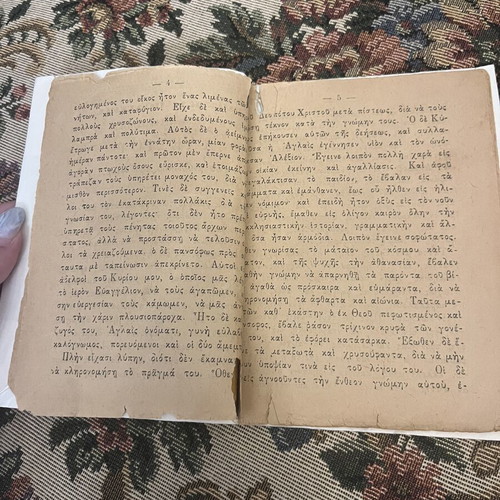 — 4 —
εὐλογημένος του οἶκος ἦτον ἕνας λιμένας τῶν
νήτων, καὶ καταφύγιον. Εἶχε δὲ καὶ ὑπη
πολλοὺς χρυσοζώνους, καὶ ἐνδεδυμένους
λαμπρὰ καὶ πολύτιμα. Αὐτὸς δὲ ὁ
ἔτρωγε μετὰ τὴν ἐννάτην ὥραν, μίαν φορὰ
ἡμέραν πάντοτε· καὶ πρῶτον μὲν ἔπερνε ἀπὸ
ἀγορὰν πτωχοὺς ὅσους εὕρισκε, καὶ ἑτοιμά
τράπεζαν τοὺς ὑπηρέτει μοναχός του, διὰ
μισθὸν περισσότερον. Τινὲς δὲ συγγενεῖς
λοι του τὸν ἐκατάκριναν πολλάκις διὰ
γνωσίαν του, λέγοντες· ὅτι δὲν ἦτο πρέ
ὑπηρετῇ τοὺς πένητας τοιοῦτος ἄρχων
στατος, ἀλλὰ νὰ προστάσσῃ νὰ τελοῦσιν
λοι τὰ χρειαζούμενα. ὁ δὲ πανσόφως πρὸς
ταυτα μὲ ταπείνωσιν ἀπεκρίνετο. Αὐτοὶ
ἀδελφοὶ τοῦ Κυρίου μου, ὁ ὁποῖος μᾶς λέ
τὸ ἱερὸν Εὐαγγέλιον, νὰ τοὺς ἀγαπῶμεν,
σην εὐεργεσίαν τοὺς κάμωμεν, νὰ μᾶς
ση τὴν χάριν πλουσιοπάροχα. Ἦτο δὲ κα
ζυγός του, Ἀγλαῒς ὀνόματι, γυνὴ εὐλαβ
καλόγνωμος, πορευόμενοι καὶ οἱ δύο ἀμεμπ
Πλὴν εἶχασι λύπην, διότι δὲν ἔκαμνα
νὰ κληρονομήσῃ τὸ πρᾶγμά του. Ὅθεν
— 5 —
Δεσπότου Χριστοῦ μετὰ πίστεως, διὰ νὰ τοὺς
τέκνον κατὰ τὴν γνώμην τους. Ὁ δὲ Κύ-
ἐπήκουσεν αὐτῶν τῆς δεήσεως, καὶ συλλα-
ἡ Ἀγλαῒς ἐγέννησεν υἱὸν καὶ τὸν ὠνό-
Ἀλέξιον. Ἔγεινε λοιπὸν πολλὴ χαρὰ εἰς
οἰκίαν ἐκείνην καὶ ἀγαλλίασις. Καὶ ἀφοῦ
γαλάκτισαν τὸ παιδίον, τὸ ἔβαλαν εἰς τὰ
γράμματα καὶ ἐμάνθανεν, ἕως οὗ ἦλθεν εἰς ἡλι-
νόμιμον καὶ ἐπειδὴ ἦτον ὀξὺς εἰς τὸν νοῦν
εὐφυής, ἔμαθεν εἰς ὀλίγον καιρὸν ὅλην τὴν
ἐκκλησιαστικὴν ἱστορίαν, γραμματικὴν καὶ ἄλ-
ὅσα ἦσαν ἁρμόδια. Λοιπὸν ἔγεινε σοφώτατος.
γνωρίσας τὸ μάταιον τοῦ κόσμου καὶ ἄ-
στατον, καὶ τῆς ψυχῆς τὴν ἀθανασίαν, ἔβαλεν
ἀγαθὴν γνώμην νὰ ἀπαρνηθῇ τὰ παρόντα τοῦ βί-
ἀγαθὰ ὡς πρόσκαιρα καὶ εὐμάραντα, διὰ νὰ
κληρονομήσῃ τὰ ἄφθαρτα καὶ αἰώνια. Ταῦτα με-
τῶν καθ' ἑκάστην ὁ ἐκ Θεοῦ πεφωτισμένος καὶ
σοφος, ἔβαλε ῥάσον τρίχινον κρυφὰ τῶν γονέ-
του, καὶ τὸ ἐφόρει κατάσαρκα. Ἔξωθεν δὲ ἐ-
τὰ μεταξωτὰ καὶ χρυσούφαντα, διὰ νὰ μὴν
ὑποψίαν τινὰ εἰς τοῦ λόγου του. Οἱ δὲ
γονεῖς ἀγνοοῦντες τὴν ἔνθεον γνώμην αὐτοῦ, ἐ-